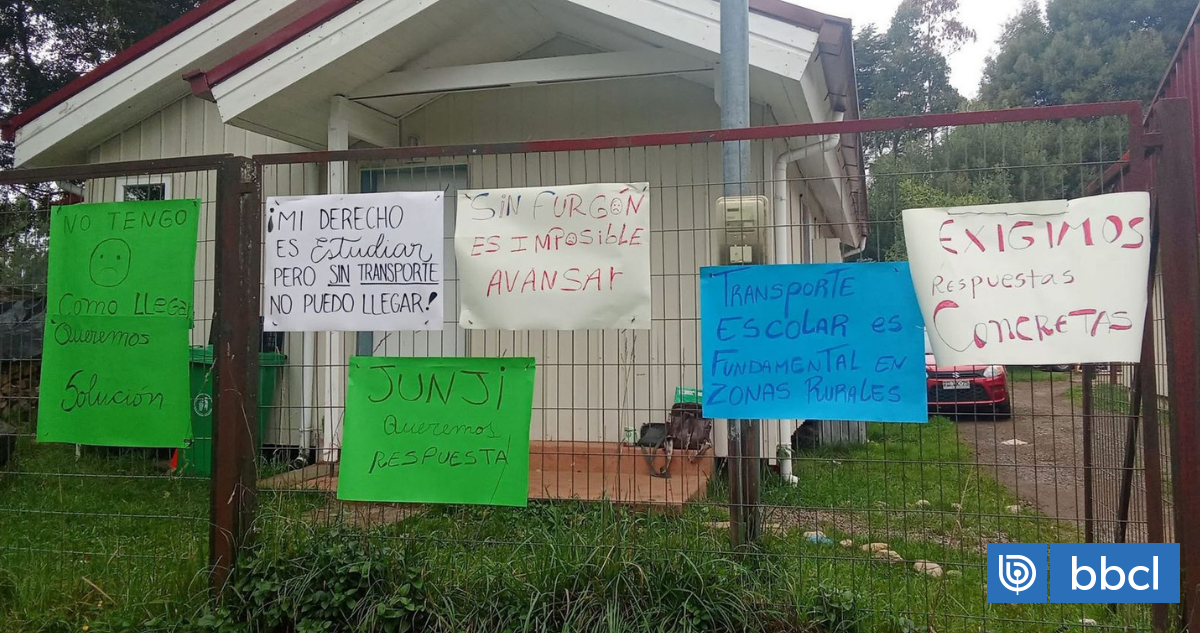 NO TENGO
COMO LLEGAR
QUEREMOS
Solución
¡MI DERECHO
ES Estudiar
PERO SIN TRANSPORTE
NO PUEDO LLEGAR!
SIN FURGÓN
ES IMPOSIBLE
AVANSAr
JUNJI
Queremos
RESPUESTA
TRANSPORTE
ESCOLAR es
FUNDAMENTAL EN
ZONAS RURALES
EXIGIMOS
Respuestas
CONCRETAS
bbcl